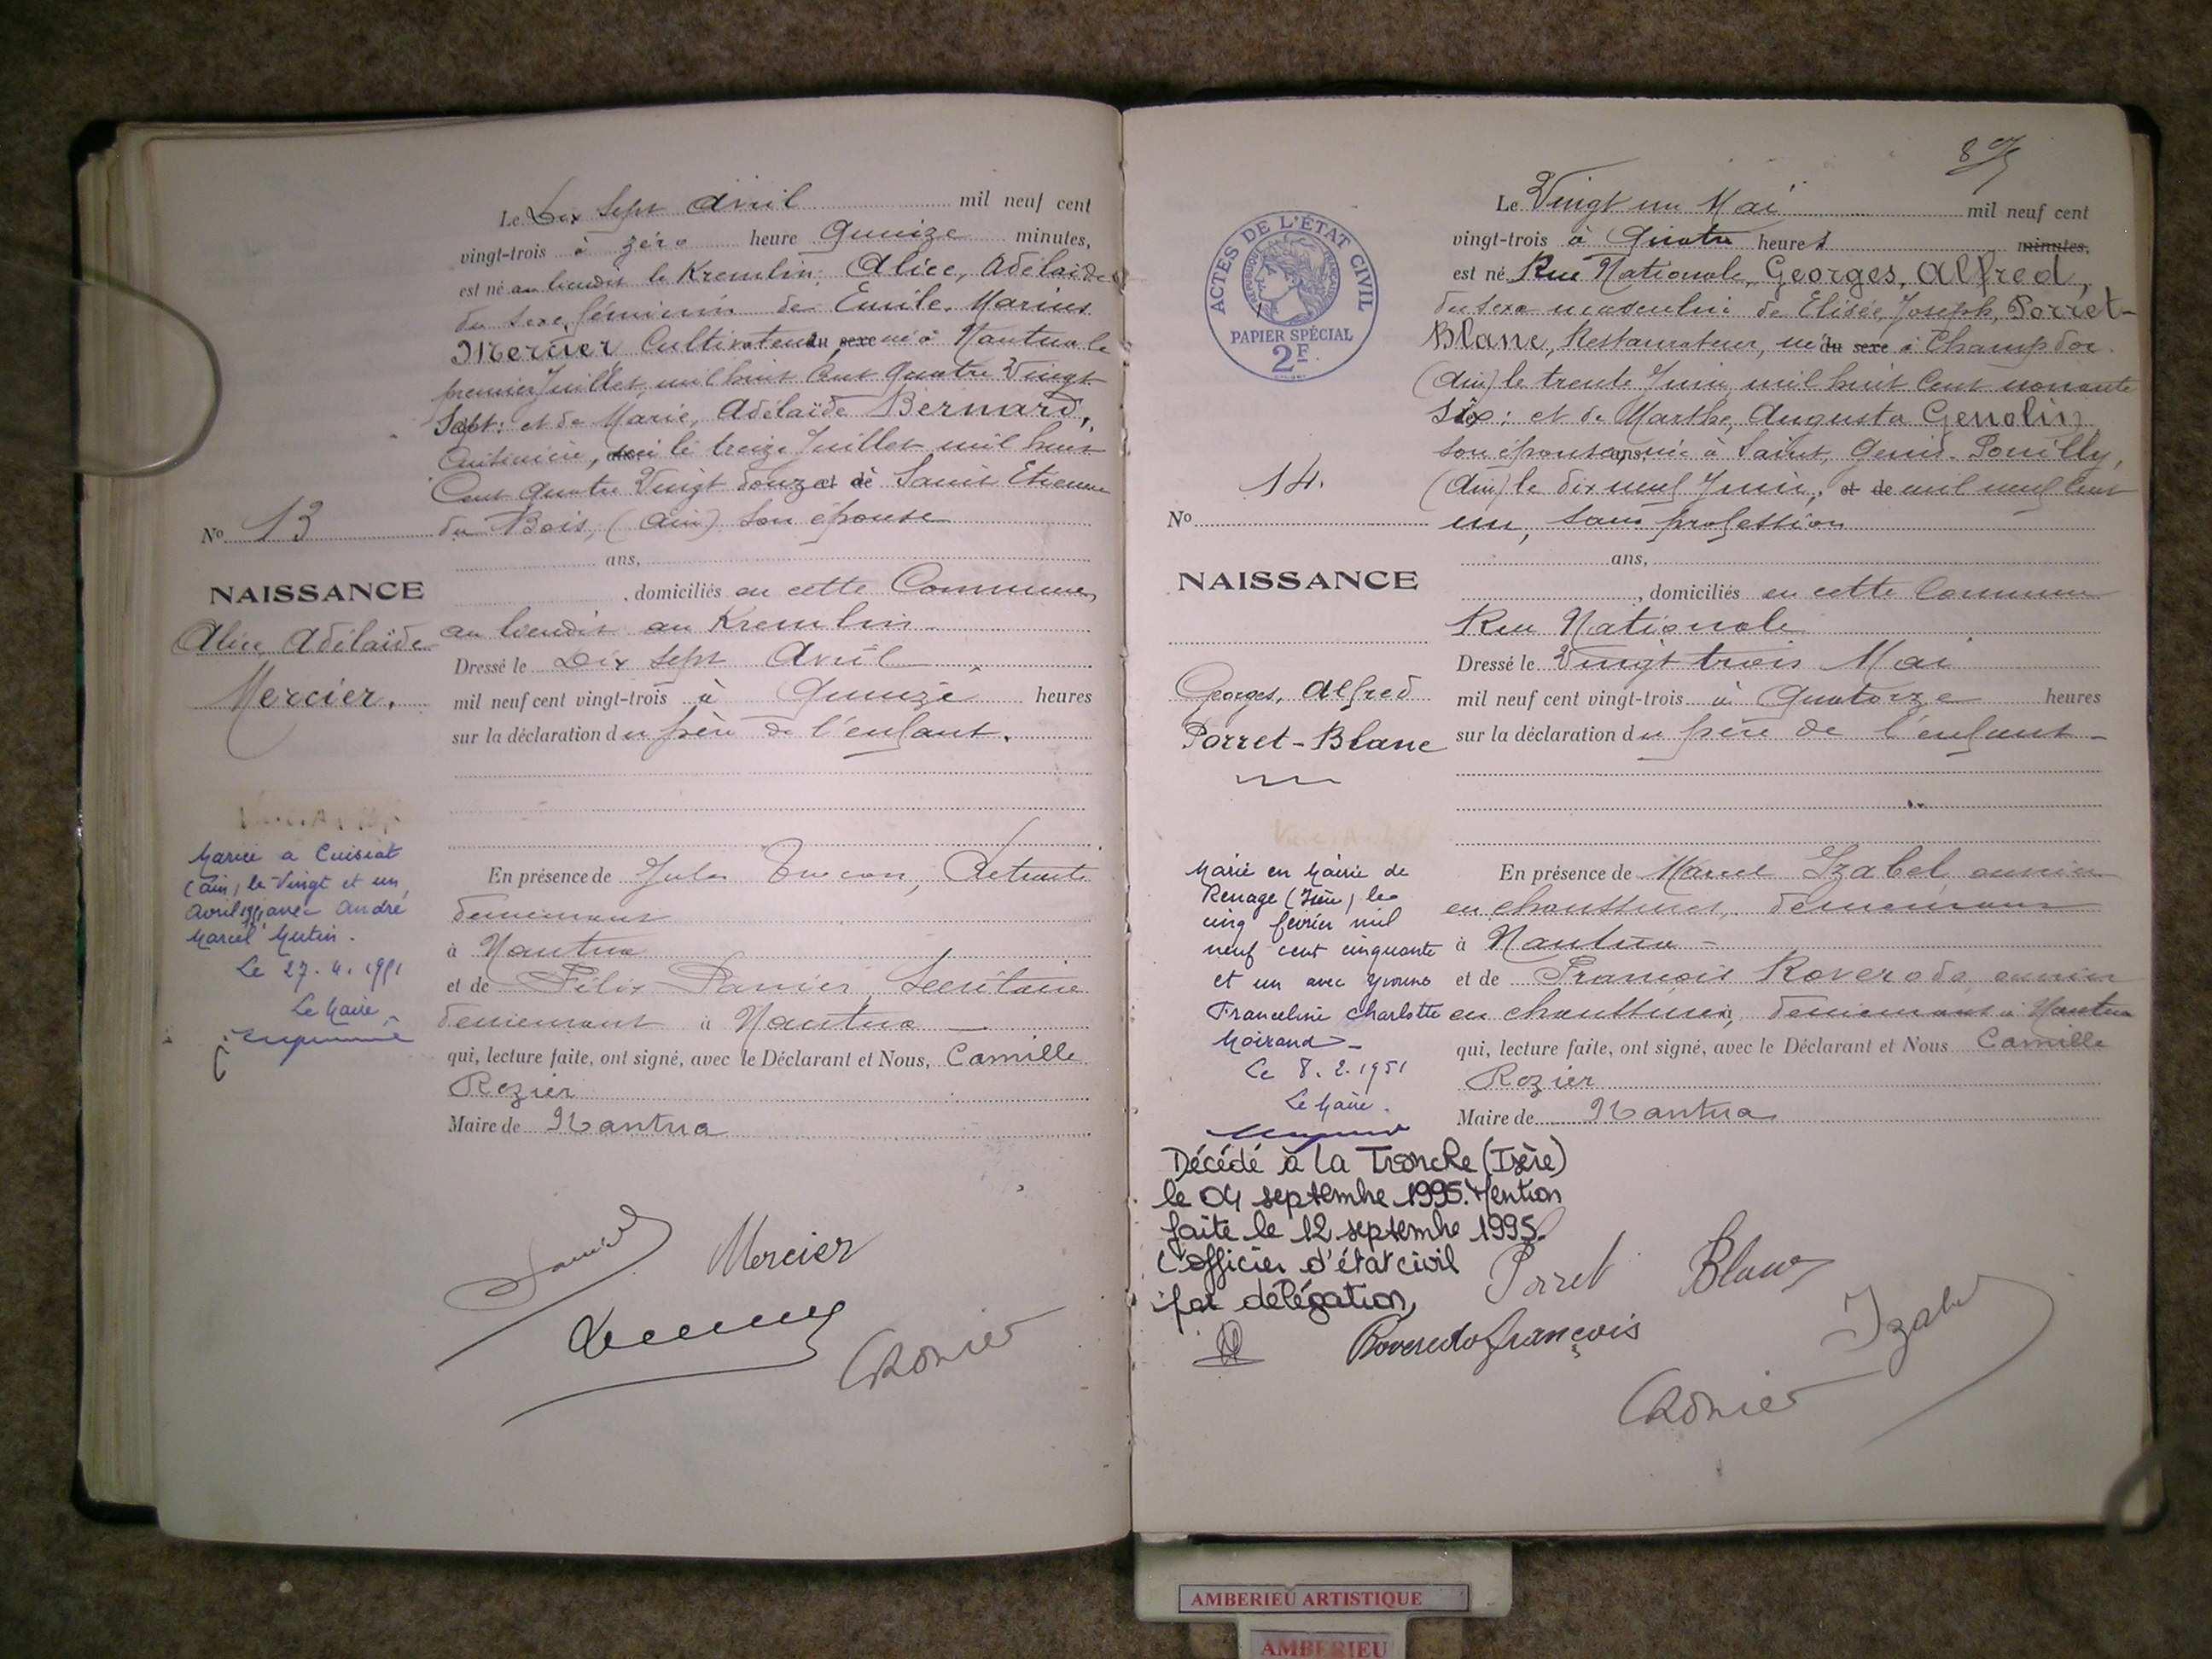 Le Dix Sept Avril mil neuf cent
vingt-trois à zéro heure Quinze minutes,
est né au lieudit le Kremlin: Alice, Adélaïde
du sexe féminin de Emile, Marius
Mercier Cultivateur du sexe né à Nantua le
premier Juillet mil huit Cent Quatre Vingt
Sept: et de Marie, Adélaïde Bernard,
Cuisinière, née le treize Juillet mil huit
Cent Quatre Vingt douze et de à Saint Etienne
du Bois, (Ain) son épouse
ans,
No 13
NAISSANCE
Alice Adélaïde
Mercier.
, domiciliés en cette Commune,
au lieudit au Kremlin
Dressé le Dix Sept Avril
mil neuf cent vingt-trois à Quinze heures
sur la déclaration du père de l'enfant.
Mariée a Cuisiat
(Ain) le Vingt et un
Avril 1951 avec André
Marcel Mutin.
Le 27.4.1951
Le Maire
En présence de Jules, Retraité
demeurant
à Nantua
et de Félix Panier, Secrétaire
demeurant à Nantua
qui, lecture faite, ont signé, avec le Déclarant et Nous, Camille
Rozier
Maire de Nantua
Mercier
Rozier
8
ACTES DE L'ÉTAT CIVIL
RÉPUBLIQUE FRANÇAISE
PAPIER SPÉCIAL
2F.
Le Vingt un Mai mil neuf cent
vingt-trois à Quatre heures minutes,
est né Rue Nationale, Georges, Alfred,
du sexe masculin de Elisée, Joseph, Porret-
Blanc, Restaurateur, né du sexe à Champdor
(Ain) le trente Juin mil huit Cent nonante
Six: et de Marthe, Augusta Genolin
son épouse, ans, née à Saint, Genis-Pouilly,
(Ain) le dix neuf Juin, et de mil neuf Cent
un, sans profession
ans,
No 14.
NAISSANCE
Georges, Alfred
Porret-Blanc
, domiciliés en cette Commune
Rue Nationale
Dressé le Vingt trois Mai
mil neuf cent vingt-trois à Quatorze heures
sur la déclaration du père de l'enfant
Marié en Mairie de
Renage (Isère) le
cinq février mil
neuf cent cinquante
et un avec Yvonne
Franceline Charlotte
Moirand
Le 8.2.1951
Le Maire.
Décédé à la Tronche (Isère)
le 04 septembre 1995. Mention
faite le 12 septembre 1995.
L'officier d'état civil
par délégation,
En présence de Marcel Izabel, ouvrier
en chaussures, demeurant
à Nantua
et de François Roveredo, ouvrier
en chaussures, demeurant à Nantua
qui, lecture faite, ont signé, avec le Déclarant et Nous Camille
Rozier
Maire de Nantua
Porret Blanc
Roveredo françois
Izabel
Rozier
AMBERIEU ARTISTIQUE
AMBERIEU